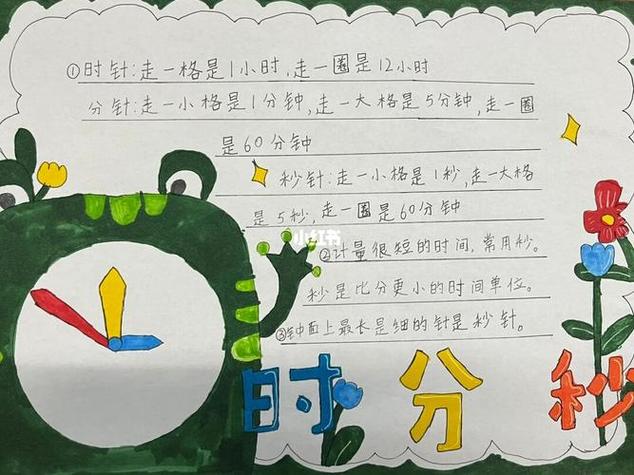 ①时针:走一格是1小时,走一圈是12小时
分针:走一小格是1分钟,走一大格是5分钟,走一圈
是60分钟
秒针:走一小格是1秒,走一大格
是5秒,走一圈是60分钟
小红书
②计量很短的时间,常用秒。
秒是比分更小的时间单位。
③钟面上最长是细的针是秒针。
时分秒